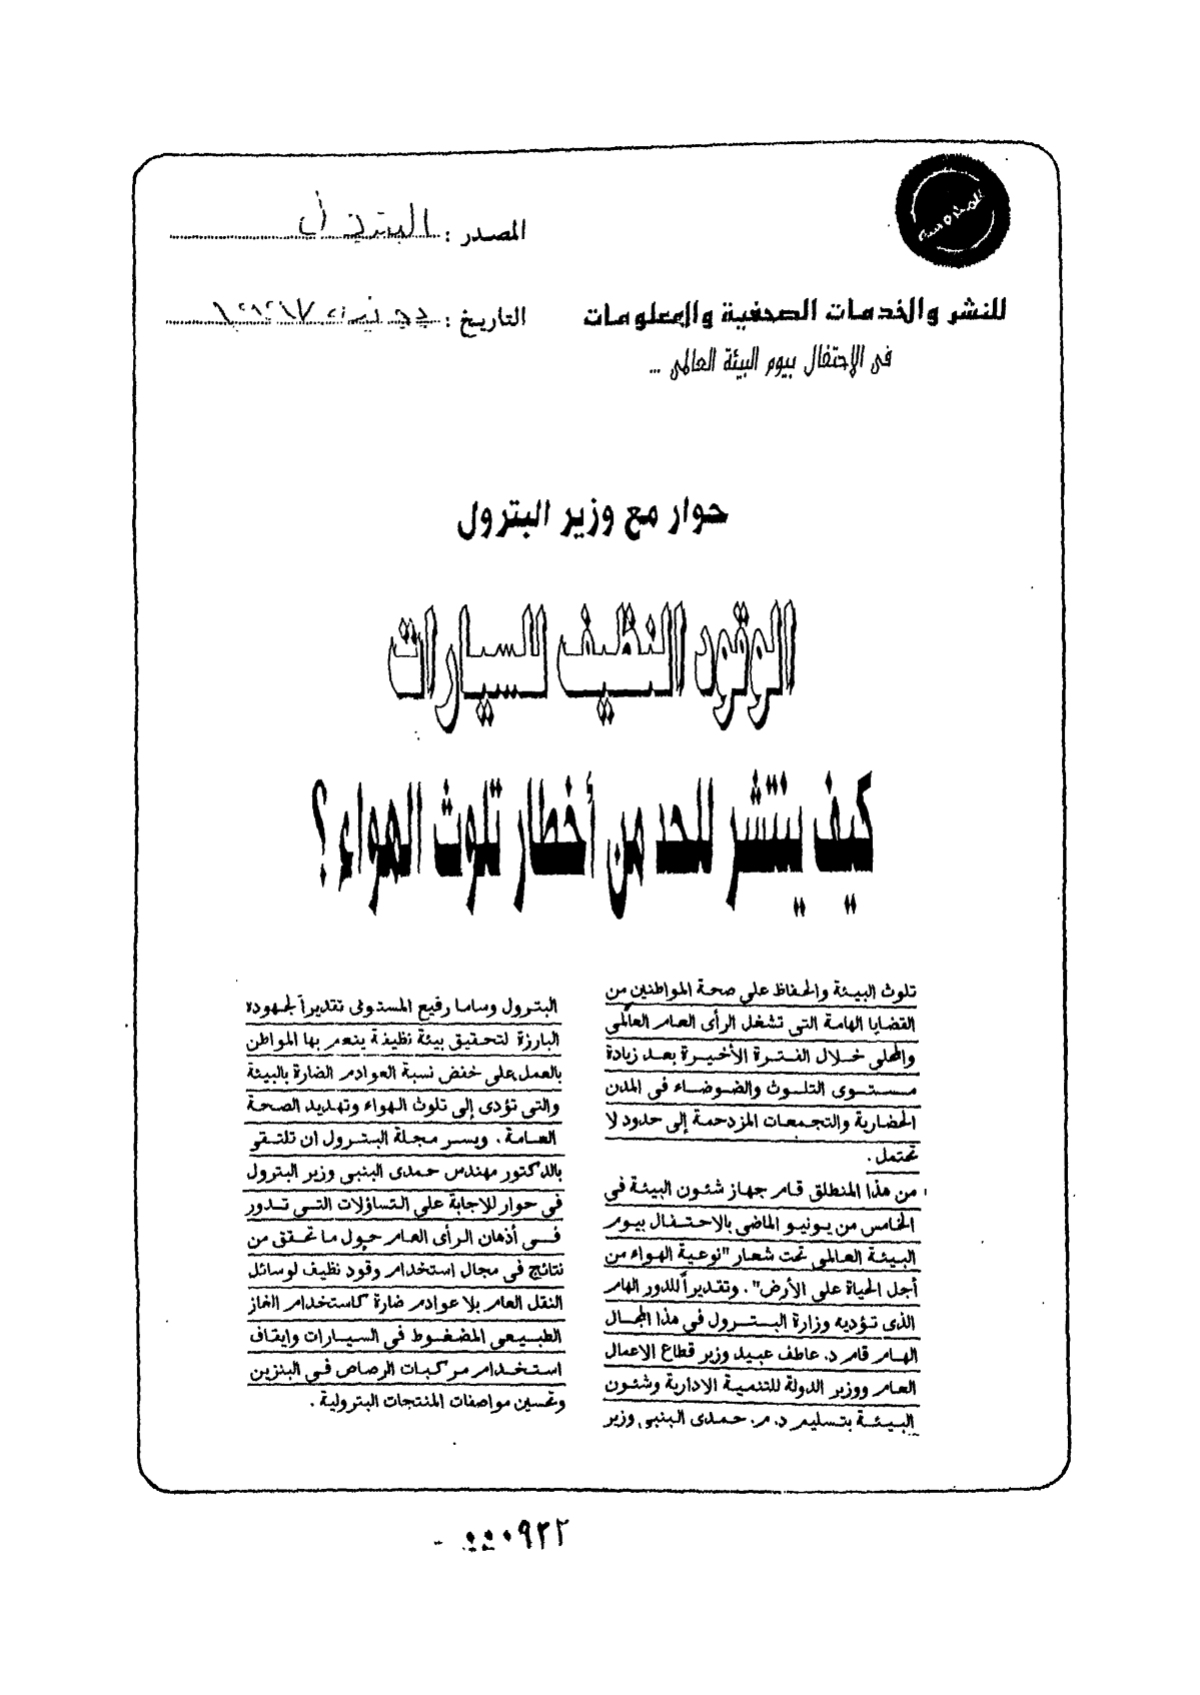 المصدر : البترول
للنشر والخدمات الصحفية والمعلومات
التاريخ :
فى الاحتفال بيوم البيئة العالمى ...
حوار مع وزير البترول
الوقود النظيف للسيارات
كيف ينتشر للحد من أخطار تلوث الهواء ؟
تلوث البيئة والحفاظ على صحة المواطنين من
القضايا الهامة التى تشغل الرأى العام العالمى
والمحلى خلال الفترة الأخيرة بعد زيادة
مستوى التلوث والضوضاء فى المدن
الحضارية والتجمعات المزدحمة إلى حدود لا
تحتمل .
من هذا المنطلق قام جهاز شئون البيئة فى
الخامس من يونيو الماضى بالاحتفال بيوم
البيئة العالمى تحت شعار "نوعية الهواء من
أجل الحياة على الأرض" . وتقديراً للدور الهام
الذى تؤديه وزارة البترول فى هذا المجال
الهام قام د. عاطف عبيد وزير قطاع الاعمال
العام ووزير الدولة للتنمية الادارية وشئون
البيئة بتسليم د. م. حمدى البنبى وزير
البترول وساما رفيع المستوى تقديراً لجهوده
البارزة لتحقيق بيئة نظيفة ينعم بها المواطن
بالعمل على خفض نسبة العوادم الضارة بالبيئة
والتى تؤدى إلى تلوث الهواء وتهديد الصحة
العامة . ويسر مجلة البترول ان تلتقى
بالدكتور مهندس حمدى البنبى وزير البترول
فى حوار للاجابة على التساؤلات التى تدور
فى أذهان الرأى العام حول ما تحقق من
نتائج فى مجال استخدام وقود نظيف لوسائل
النقل العام بلا عوادم ضارة كاستخدام الغاز
الطبيعى المضغوط فى السيارات وايقاف
استخدام مركبات الرصاص فى البنزين
وتحسين مواصفات المنتجات البترولية .